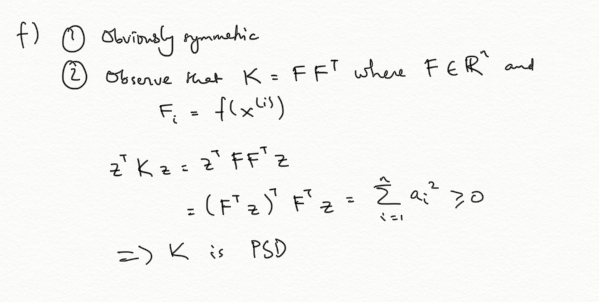 f) ① Obviously symmetric
② Observe that K = F Fᵀ where F ∈ ℝⁿ and
Fᵢ = f(x⁽ⁱ⁾)
zᵀ K z = zᵀ F Fᵀ z
= (Fᵀ z)ᵀ Fᵀ z = ∑ⁿᵢ₌₁ aᵢ² ≥ 0
⇒ K is PSD